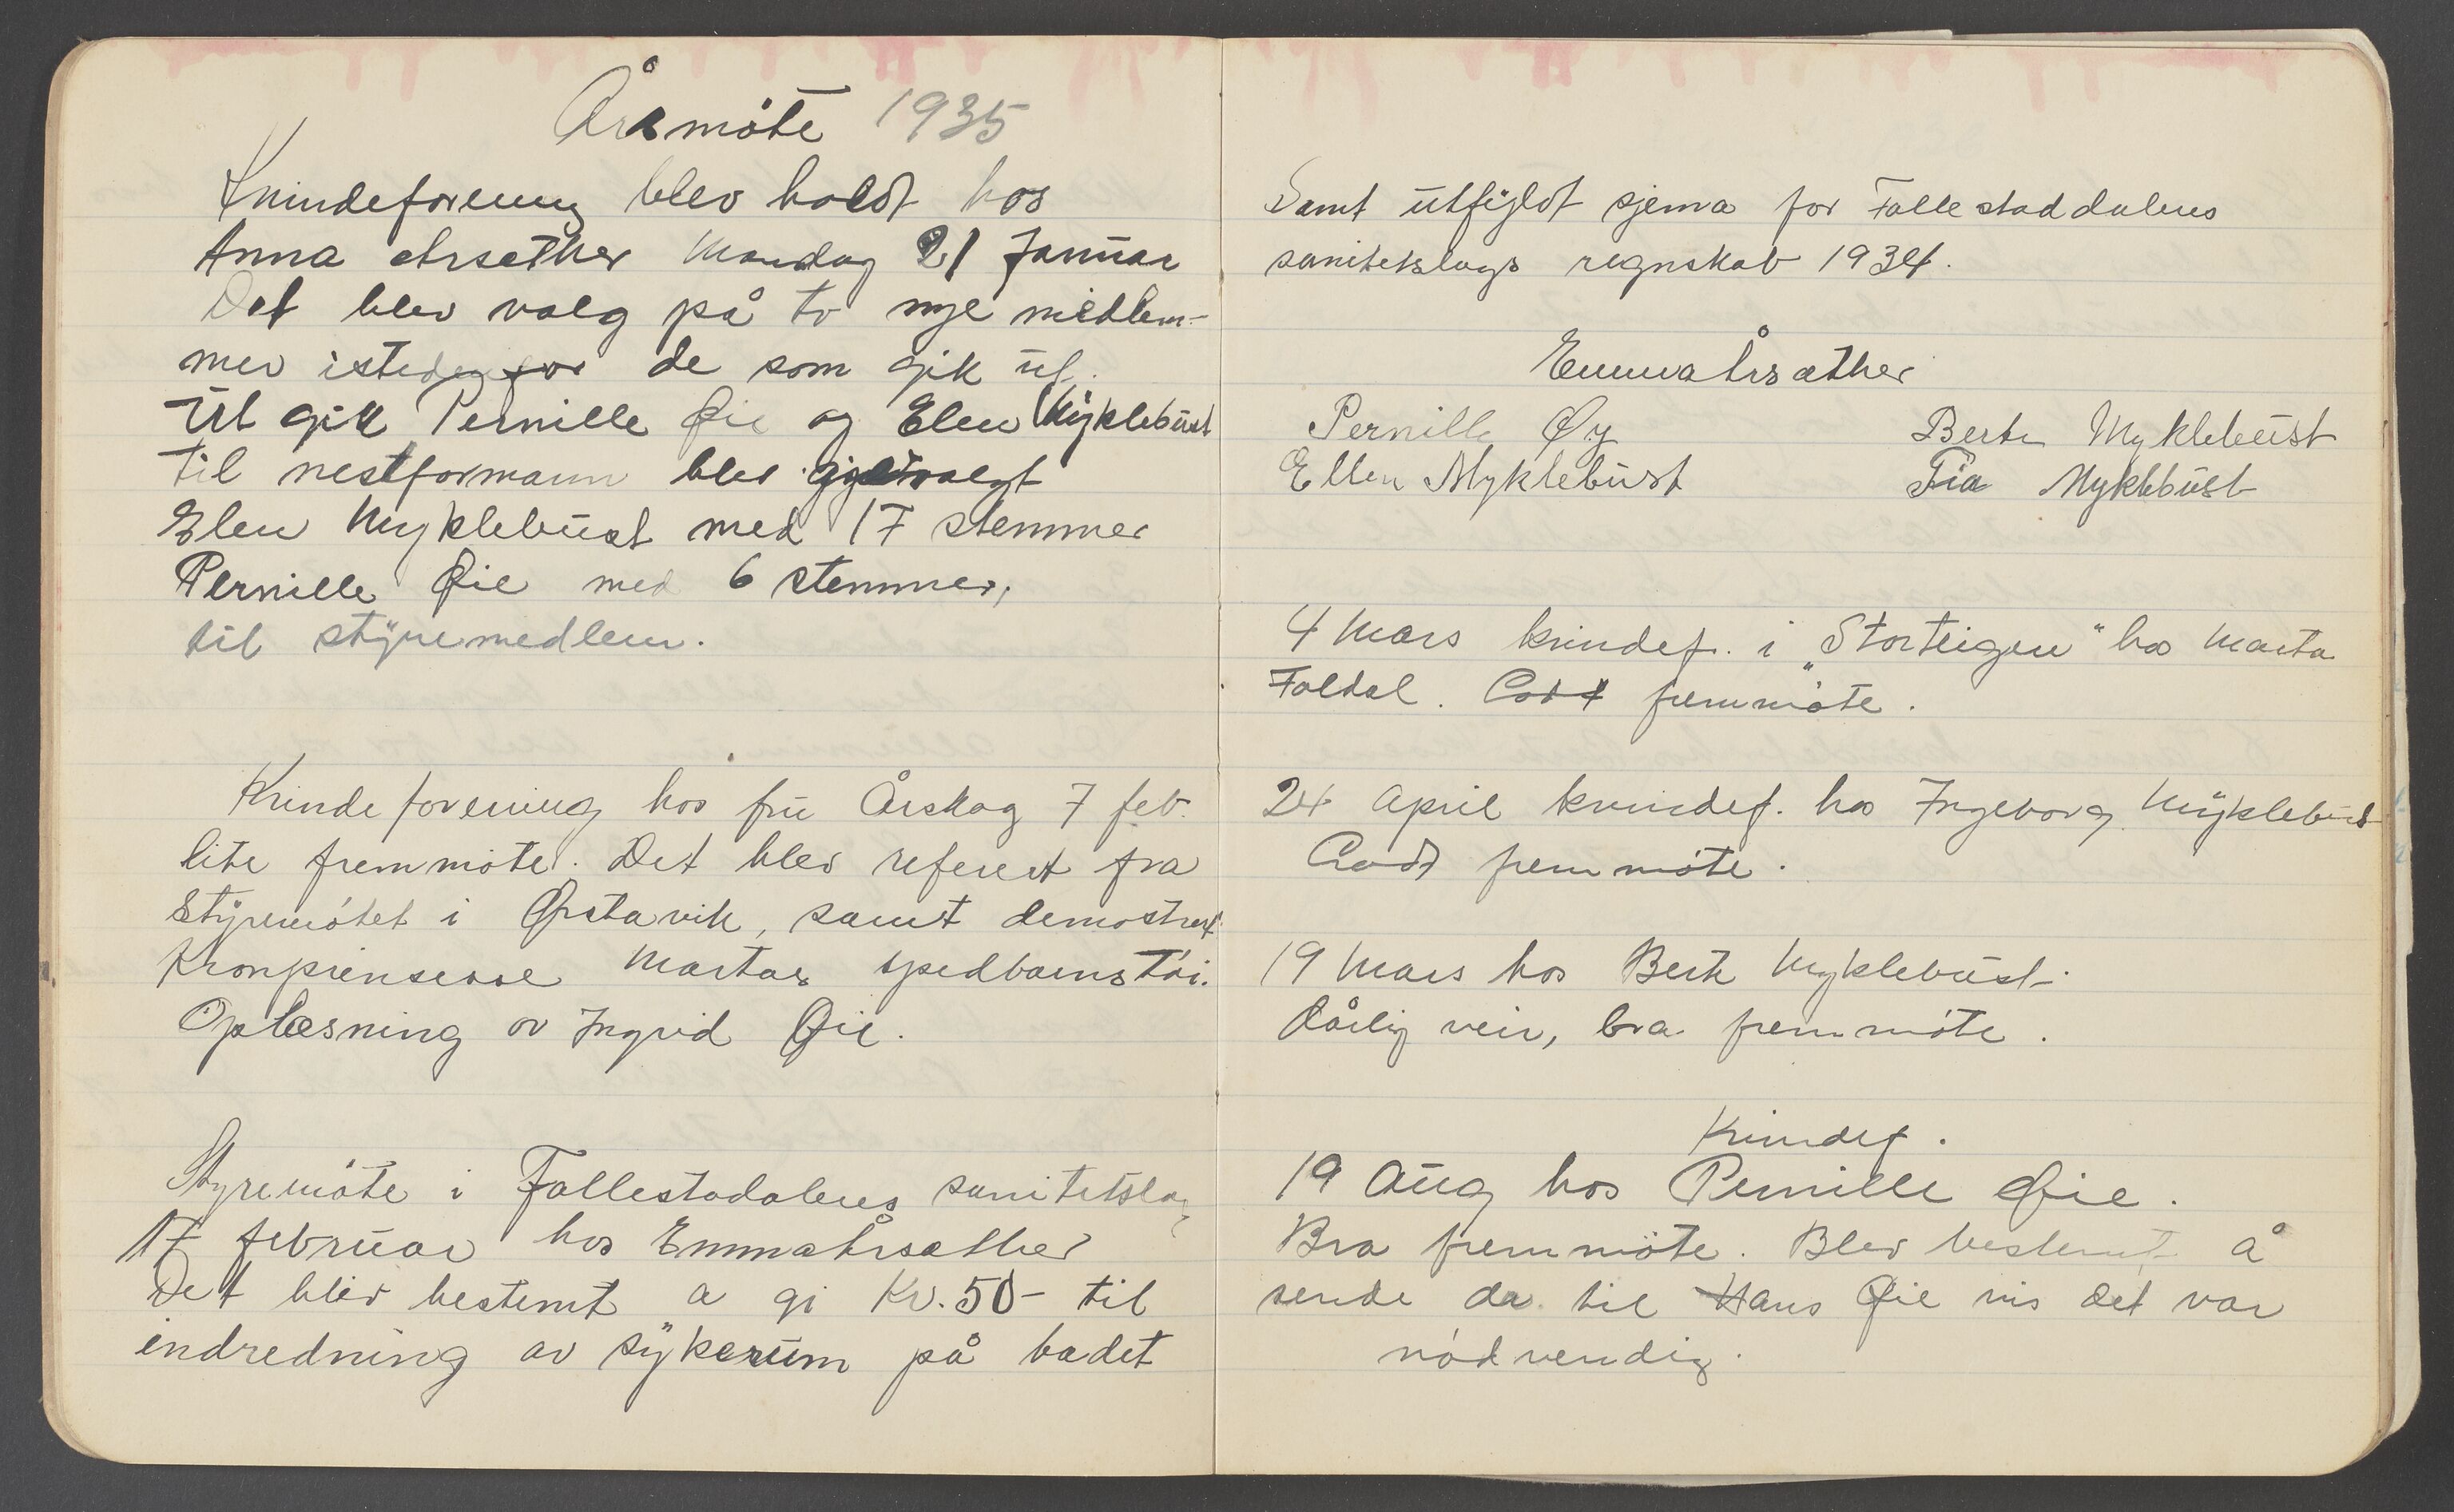 Årsmöte 1935
Kvindeforening blev holdt hos
Anna Årsæther Mandag 21 Januar
Det blev valg på to nye medlem-
mer istedenfor de som gik ut.
Ut gik Pernille Øie og Elen Myklebust
til nestformann blev valgt
Elen Myklebust med 17 stemmer
Pernille Øie med 6 stemmer,
til styremedlem.
Kvindeforening hos fru Årskog 7 feb.
lite fremmöte. Det blev referert fra
Styremötet i Ørstavik, samt demostrert
Kronprinsesse Martas spedbarnstöi.
Oplæsning av Ingrid Øie.
Styremöte i Follestadalens sanitetslag
17 februar hos Emma Årsæther
Det blev bestemt a gi Kr. 50- til
indredning av sykerum på badet
Samt utfyldt sjema for Follestaddalens
sanitetslags regnskab 1934.
Emma Årsæther
Pernille Øy Berte Myklebust
Ellen Myklebust Fia Myklebust
4 Mars kvindef. i „Storteigen" hos Marta
Foldal. Godt fremmöte.
24 April kvindef. hos Ingeborg Myklebust
Godt fremmöte.
19 Mars hos Berte Myklebust.
dårlig veir, bra fremmöte.
Kvindef.
19 Aug hos Pernille Øie.
Bra fremmöte. Blev bestemt å
sende da til Hans Øie vis det var
nödvendig.